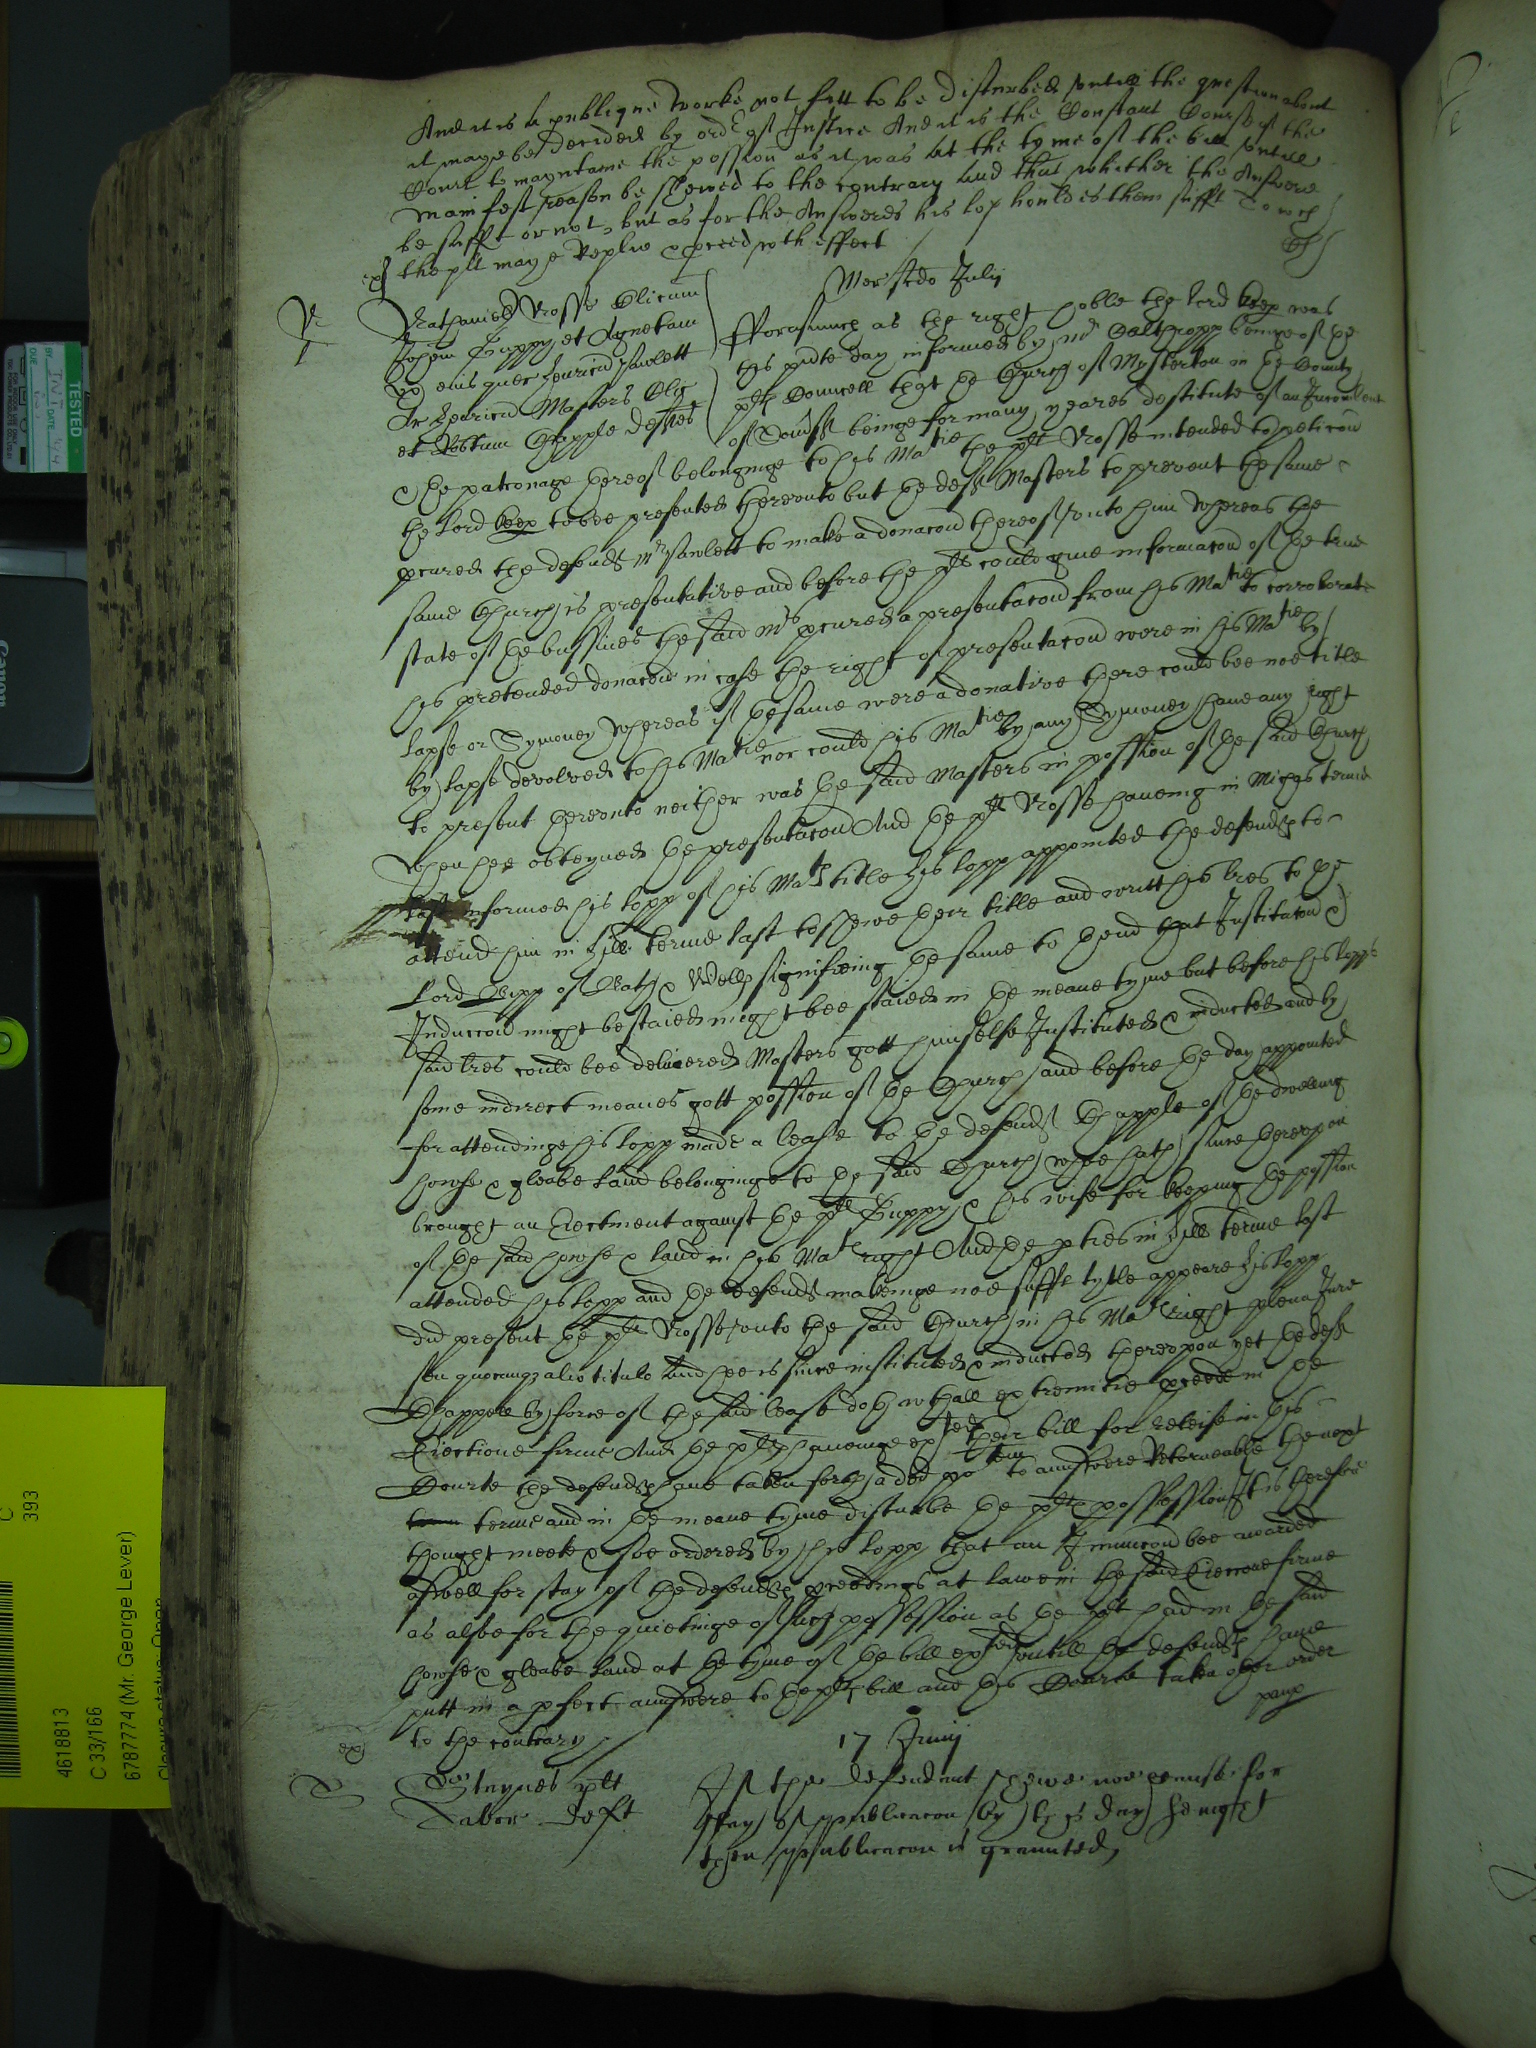 And it is a publique worke not fitt to be disturbed untill the question about
it maye be decided by ordr of Justice And it is the Constant Course of the
Court to mayntaine the possion as it was at the tyme of the bill untill
manifest reason be shewed to the contrary and that whither the Answere
be sufft or not, but as for the Answeres his lop houldes them sufft To wch
the plt maye Replie & pceed wth effect
Mer scdo Julij
Nathaniel Rosse Clicum
Johem Guppy et Agnetam
ux eius quer Henricu Pawlett
Ar Henricu Masters Clic
et Robtum Chapple defftes
Fforasmuch as the right hoble the lord keep was
this pnte day informed by mr Calthropp beinge of the
plts Councell that the Church of Mysterton in the County
of Somst beinge for many yeares destitute of an Incumbent
& the patronage thereof belonginge to his Matie the plt Rosse intended to peticon
the lord keep to bee presented therevnto but the deft Masters to prevent the same
pcured the defendt Mr Pawlett to make a donacon thereof vnto him whereas the
same Church is presentative and before the plts could give informacon of the true
state of the bussines the said Mrs pcured a presentacon from his Matie to corroborate
his pretended donacon in case the right of presentacon were in his Matie by
lapse or Symoney whereas if the same were a donative there could bee noe title
by lapse devolved to his Matie nor could his Matie by any Symoney have any right
to present therevnto neither was the said Masters in possion of the said Church
when hee obteyned the presentacon And the plt Rosse haveing in Michs terme
last informed his lopp of his Mats title his lopp appointed the defendts to
attend him in Hill terme last to shewe their title and writt his lres to the
Lord Bipp of Bath & Wells signifieing the same to thend that Institucon &
Induccon might be staied might bee staied in the meane tyme but before his lopps
said lres could bee delivered Masters gott himselfe Instituted & inducted and by
some indirect meanes gott possion of the Church and before the day appointed
for attendinge his lopp made a lease to the defendt Chapple of the dwelling
howse & gleabe land belonginge to the said Church whoe hath since therevpon
brought an Eiectment against the plt Guppy & his wife for keeping the possion
of the said howse & land in his Mats right And the pties in Hill terme last
attended his lopp and the defendts makeinge noe suffit tytle appeare his lopp
did present the plt Rosse vnto the said Church in his Mats right pleno Jure
seu quocunqz alio titulo And hee is since instituted & inducted therevpon yet the deft
Chappell by force of the said lease doth wth all extremitie pceede in the
Eiectione firme And the plts haveinge exted their bill for releife in this
Courte the defendts have taken forth a ded potem to annswere Retorneable the next
terme and in the meane tyme disturbe the plts possession It is therefore
thought meete & soe ordered by his lopp that an Iniunccon bee awarded
aswell for stay of the defendts pceedings at lawe in the said Eieccone firme
as alsoe for the quietinge of such possession as the plt had in the said
howse & gleabe land at the tyme of the bill exted vntill the defendts have
putt in a pfect annswere to the plts bill and this Courte taken other order
to the contrary
17 Junij
Haynes plt
Tabor deft
If the defendant shewe noe cause for
stay of publicacon by this day senight
then publicacon is graunted
TESTED
INT
4618813
C 33/166
6787774 (Mr. George Lever)
C
393
Canon